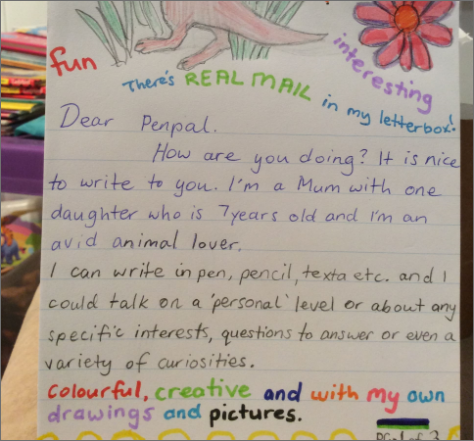 fun
There's REAL MAIL in my letterbox!
interesting
Dear Penpal.
How are you doing? It is nice
to write to you. I'm a Mum with one
daughter who is 7years old and I'm an
avid animal lover.
I can write in pen, pencil, texta etc. and I
could talk on a 'personal' level or about any
specific interests, questions to answer or even a
variety of curiosities.
Colourful, creative and with my own
drawings and pictures.